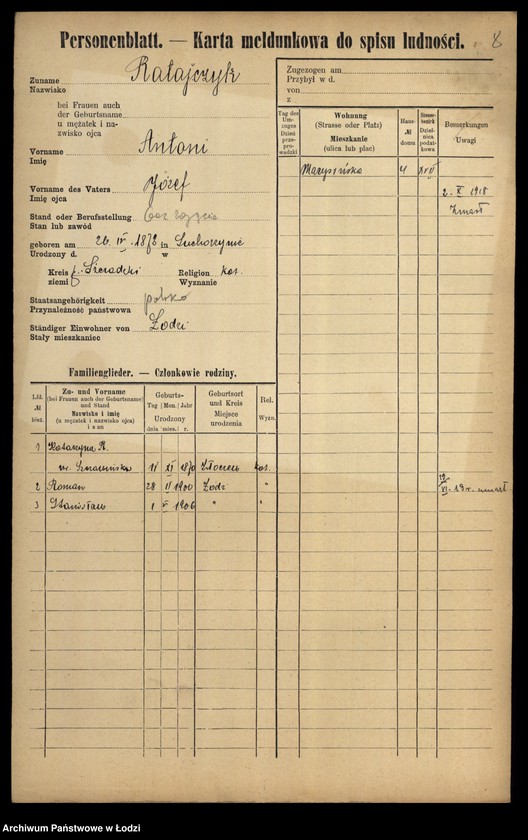 Personenblatt. — Karta meldunkowa do spisu ludności.
8
Zuname
Nazwisko
Ratajczyk
bei Frauen auch
der Geburtsname
u mężatek i na-
zwisko ojca
Vorname
Imię
Antoni
Vorname des Vaters
Imię ojca
Józef
Stand oder Berufsstellung
Stan lub zawód
bez zajęcia
geboren am 26. IV. 1872 in
Urodzony d. w
Kreis Sieradzki Religion kat.
ziemi Wyznanie
Staatsangehörigkeit
Przynależność państwowa
polska
Ständiger Einwohner von
Stały mieszkaniec
Łodzi
Zugezogen am
Przybył w d.
von
z
Tag des
Um-
zuges
Dzień
prze-
prowadzki
Wohnung
(Strasse oder Platz)
Mieszkanie
(ulica lub plac)
Haus-
№
domu
Steuer-
bezirk
Dziel-
nica
podat-
kowa
Bemerkungen
Uwagi
Marysińska 4
2. X 1918
Zmarł
Familienglieder. — Członkowie rodziny.
Lfd.
№
bież.
Zu- und Vorname
(bei Frauen auch der Geburtsname)
und Stand
Nazwisko i imię
(u mężatek i nazwisko ojca)
i stan
Geburts-
Tag | Mon. | Jahr
Urodzony
dnia mies. r.
Geburtsort
und Kreis
Miejsce
urodzenia
Rel.
Wyzn.
1 Katarzyna R.
11 XI 1870 Złoczew kat.
2 Roman 28 II 1900 Łodz "
3 Stanisław 1 V 1906 " "
Archiwum Państwowe w Łodzi